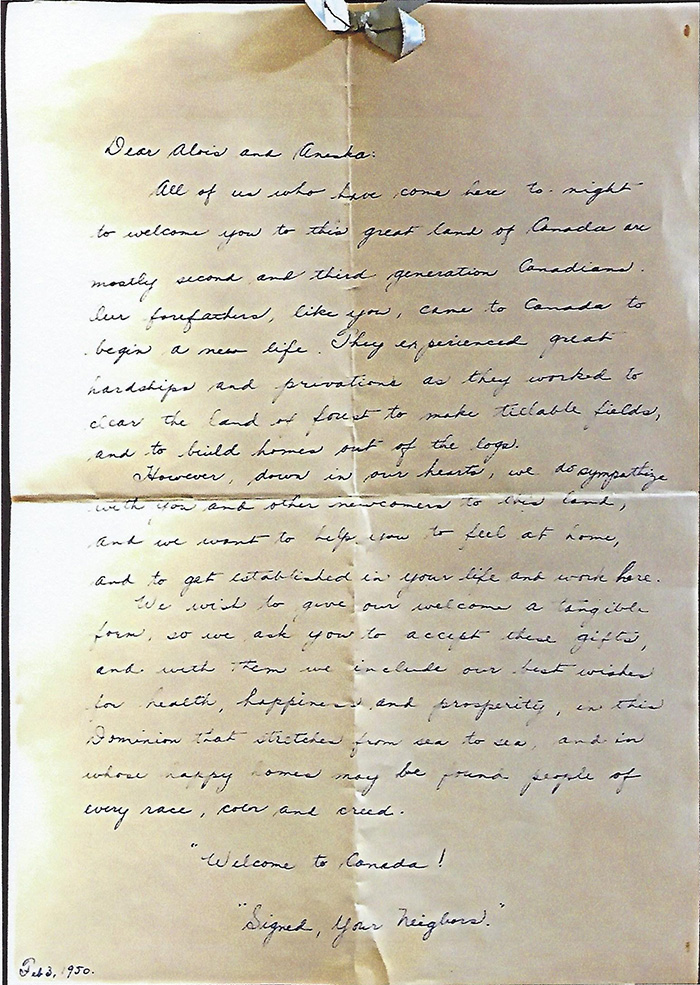 Dear Alois and Aneska:
All of us who have come here to-night
to welcome you to this great land of Canada are
mostly second and third generation Canadians.
Our forefathers, like you, came to Canada to
begin a new life. They experienced great
hardships and privations as they worked to
clear the land of forest to make tillable fields,
and to build homes out of the logs.
However, down in our hearts, we do sympathize
with you and other newcomers to this land,
and we want to help you to feel at home,
and to get established in your life and work here.
We wish to give our welcome a tangible
form, so we ask you to accept these gifts,
and with them we include our best wishes
for health, happiness and prosperity, in this
Dominion that stretches from sea to sea, and in
whose happy homes may be found people of
every race, coler and creed.
"Welcome to Canada!
"Signed, Your Neigbors."
Feb 3, 1950.